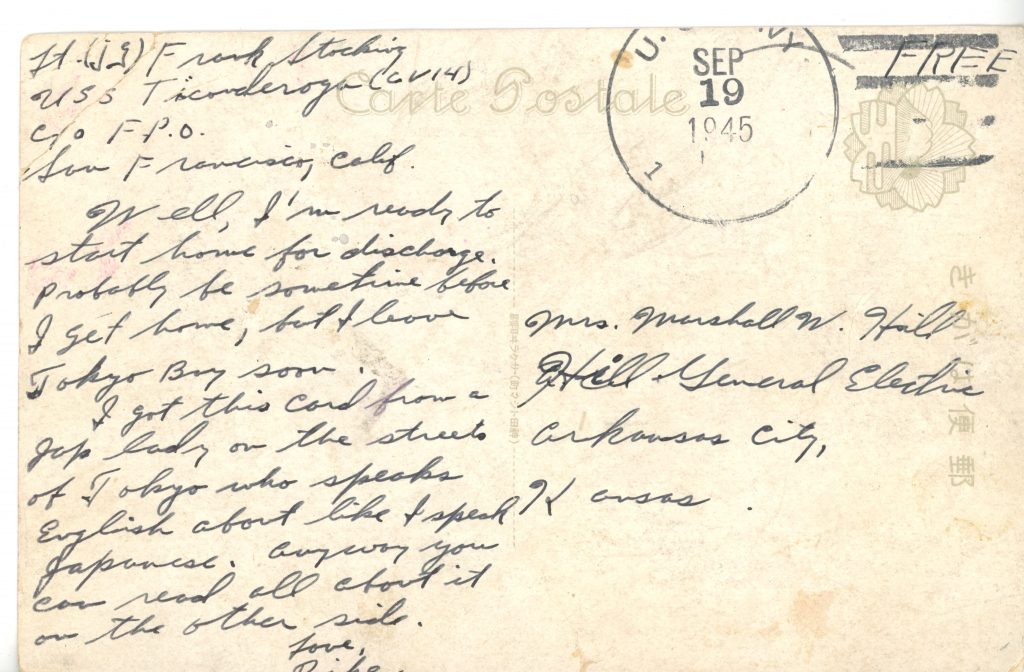 Lt. (jg) Frank Stocking
USS Ticonderoga (CV14)
c/o F.P.O.
San Francisco, Calif.
Well, I'm ready to
start home for discharge.
Probably be sometime before
I get home, but I leave
Tokyo Bay soon.
I got this card from a
Jap lady on the streets
of Tokyo who speaks
English about like I speak
Japanese. Anyway you
can read all about it
on the other side.
Love,
Carte Postale
U.S.
SEP
19
1945
1
FREE
Mrs. Marshall W. Hill
Hill General Electric
Arkansas City,
Kansas.
郵便はがき